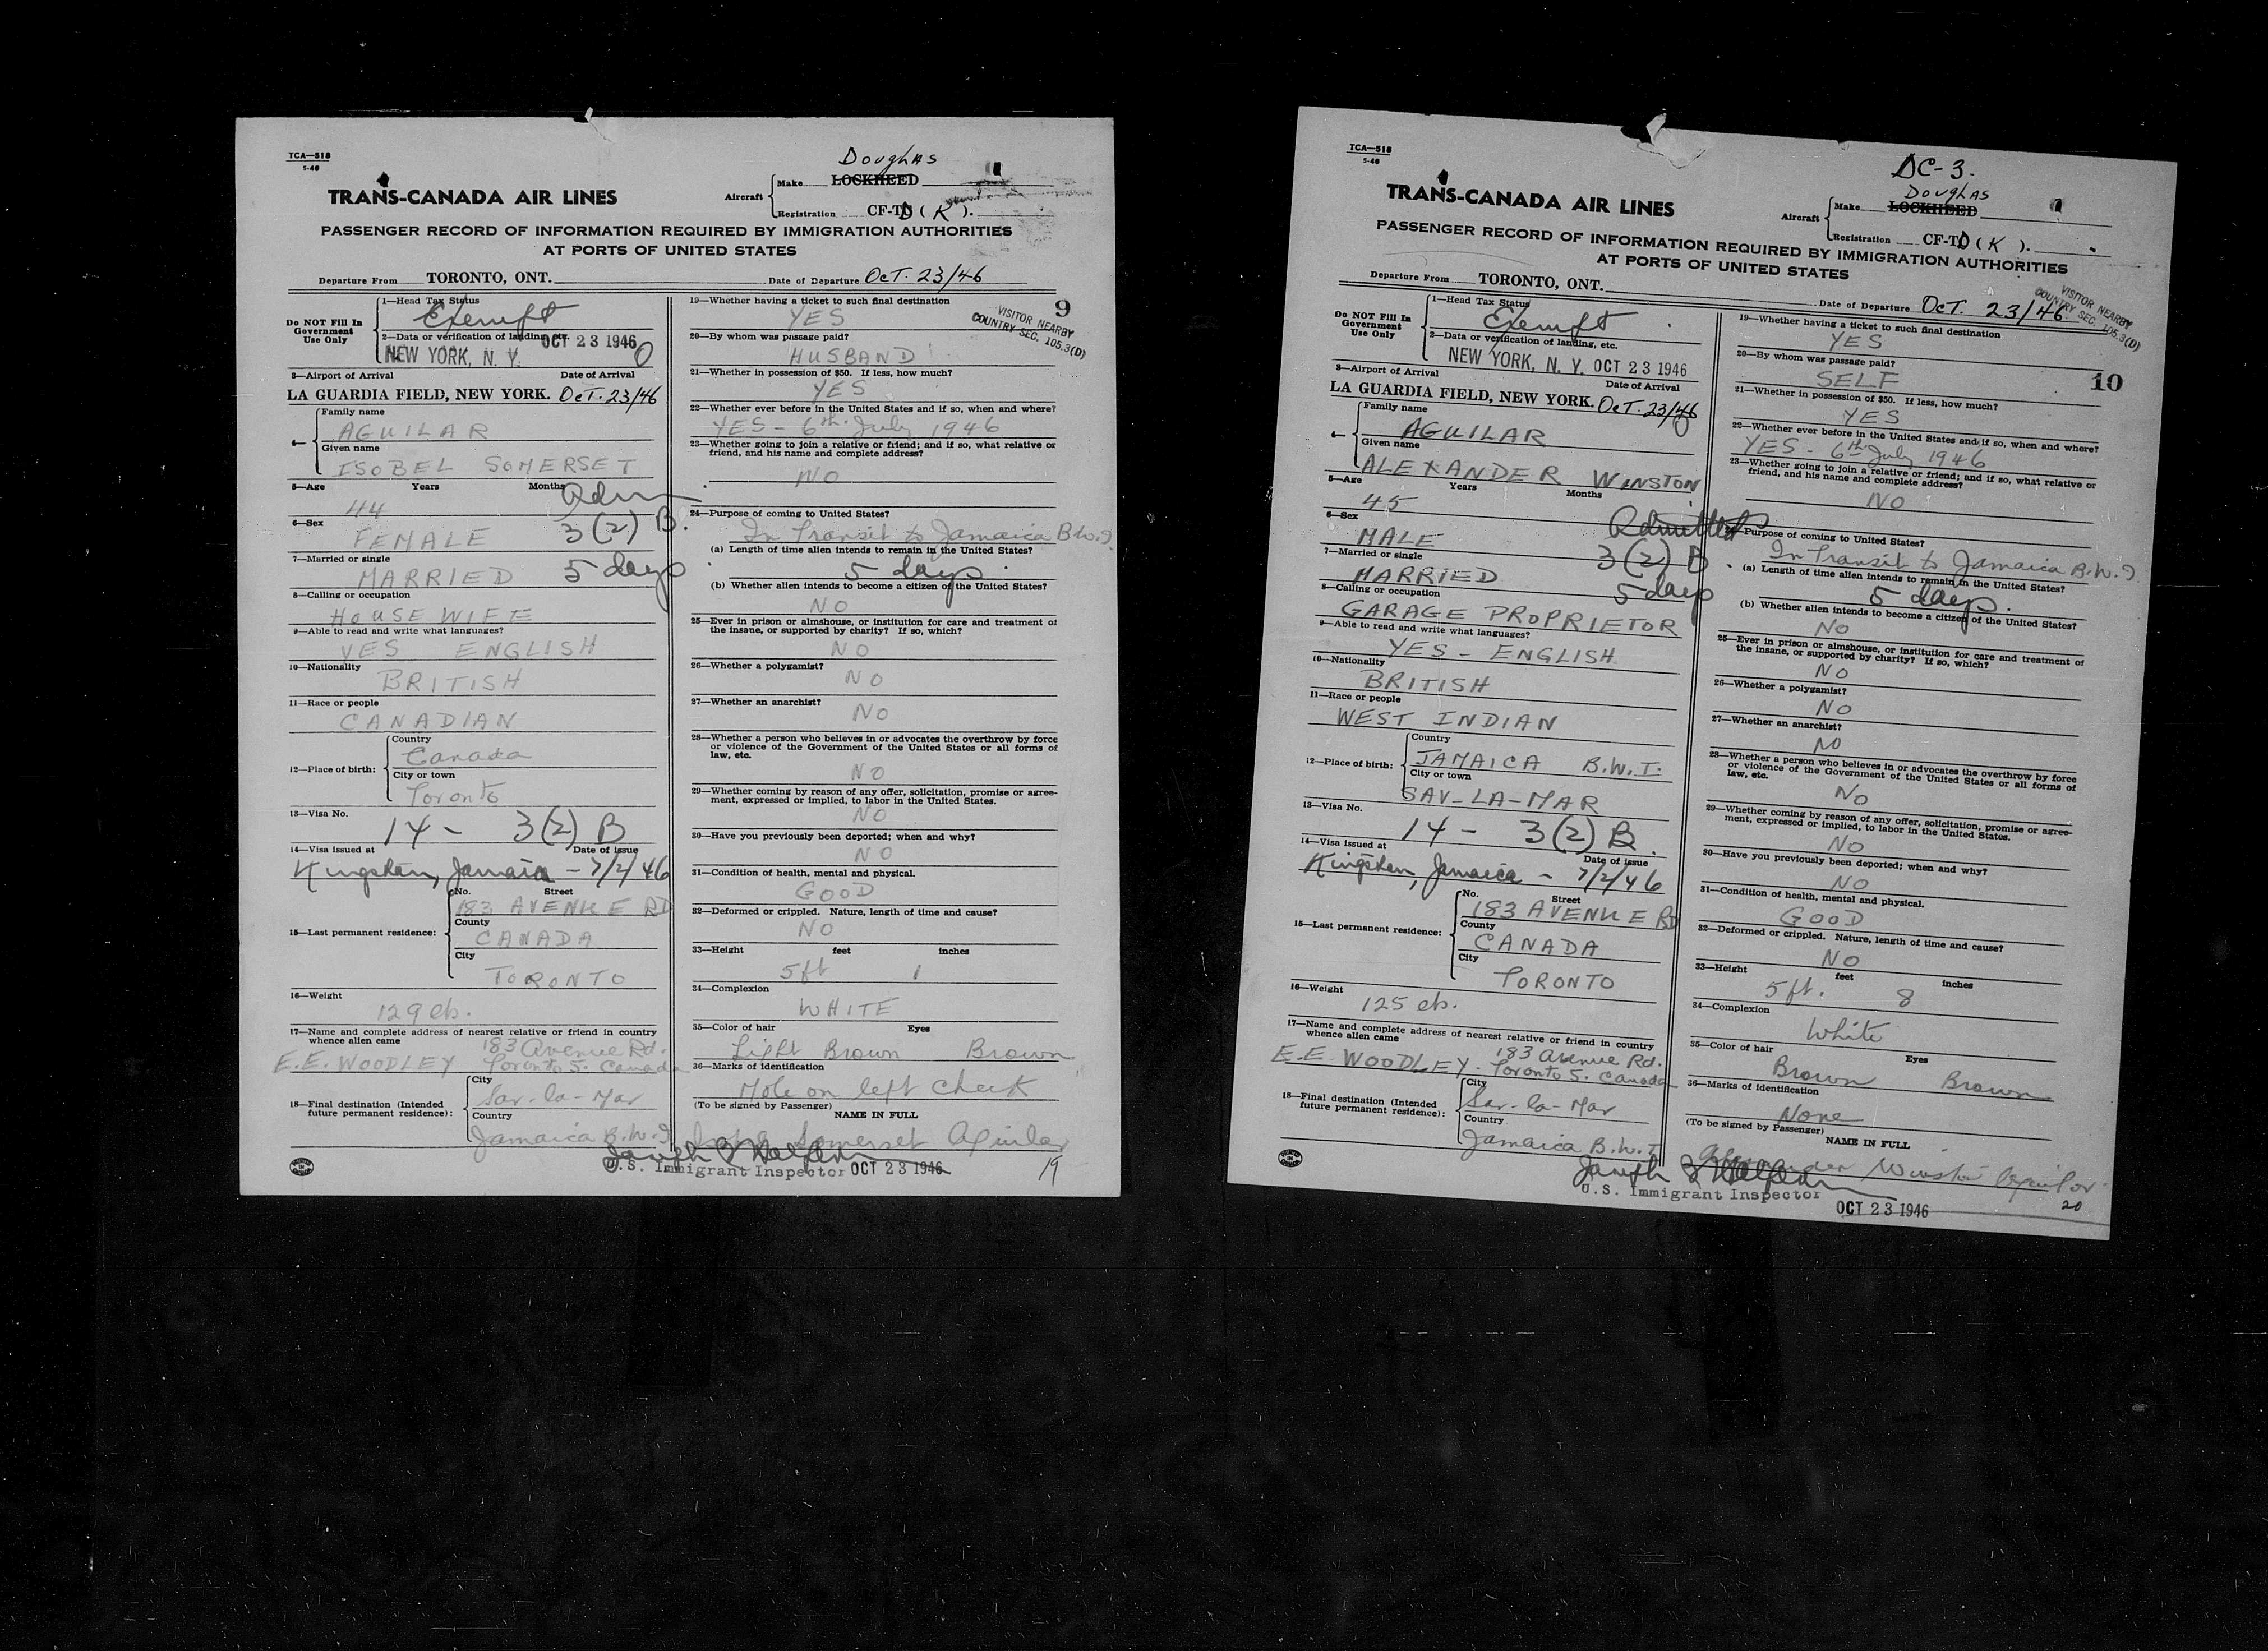 TCA—518
5-46
TRANS-CANADA AIR LINES
Aircraft
Make
Douglas
LOCKHEED
Registration CF-TD (K).
PASSENGER RECORD OF INFORMATION REQUIRED BY IMMIGRATION AUTHORITIES
AT PORTS OF UNITED STATES
Departure From TORONTO, ONT. Date of Departure Oct. 23/46
Do NOT Fill In
Government
Use Only
1—Head Tax Status
Exempt
2—Data or verification of landing, etc.
NEW YORK, N. Y. OCT 23 1946
3—Airport of Arrival Date of Arrival
LA GUARDIA FIELD, NEW YORK. Oct. 23/46
4— Family name
AGUILAR
Given name
ISOBEL SOMERSET
5—Age Years Months
44
6—Sex
FEMALE 3(2) B.
7—Married or single
MARRIED 5 days
8—Calling or occupation
HOUSE WIFE
9—Able to read and write what languages?
YES ENGLISH
10—Nationality
BRITISH
11—Race or people
CANADIAN
12—Place of birth:
Country
Canada
City or town
Toronto
13—Visa No.
14 - 3(2) B
14—Visa issued at Date of issue
Kingston, Jamaica - 7/2/46
15—Last permanent residence:
No. Street
183 AVENUE RD
County
CANADA
City
TORONTO
16—Weight
129 lbs.
17—Name and complete address of nearest relative or friend in country
whence alien came
183 Avenue Rd.
E.E. WOODLEY Toronto 5. Canada
18—Final destination (Intended
future permanent residence):
City
Sav-la-Mar
Country
Jamaica B.W.I
19—Whether having a ticket to such final destination
YES
9
VISITOR NEARBY
COUNTRY SEC. 105.3(D)
20—By whom was passage paid?
HUSBAND
21—Whether in possession of $50. If less, how much?
YES
22—Whether ever before in the United States and if so, when and where?
YES - 6th July 1946
23—Whether going to join a relative or friend; and if so, what relative or
friend, and his name and complete address?
NO
24—Purpose of coming to United States?
In Transit to Jamaica B.W.I
(a) Length of time alien intends to remain in the United States?
5 days.
(b) Whether alien intends to become a citizen of the United States?
NO
25—Ever in prison or almshouse, or institution for care and treatment of
the insane, or supported by charity? If so, which?
NO
26—Whether a polygamist?
NO
27—Whether an anarchist?
NO
28—Whether a person who believes in or advocates the overthrow by force
or violence of the Government of the United States or all forms of
law, etc.
NO
29—Whether coming by reason of any offer, solicitation, promise or agree-
ment, expressed or implied, to labor in the United States.
NO
30—Have you previously been deported; when and why?
NO
31—Condition of health, mental and physical.
GOOD
32—Deformed or crippled. Nature, length of time and cause?
NO
33—Height feet inches
5ft 1
34—Complexion
WHITE
35—Color of hair Eyes
Light Brown Brown
36—Marks of identification
Mole on left cheek
(To be signed by Passenger)
NAME IN FULL
Somerset Aguilar
U.S. Immigrant Inspector OCT 23 1946
19
TCA—518
5-46
TRANS-CANADA AIR LINES
DC-3.
Aircraft
Make
Douglas
LOCKHEED
Registration CF-TD (K).
PASSENGER RECORD OF INFORMATION REQUIRED BY IMMIGRATION AUTHORITIES
AT PORTS OF UNITED STATES
Departure From TORONTO, ONT. Date of Departure Oct. 23/46
Do NOT Fill In
Government
Use Only
1—Head Tax Status
Exempt
2—Data or verification of landing, etc.
NEW YORK, N. Y. OCT 23 1946
3—Airport of Arrival Date of Arrival
LA GUARDIA FIELD, NEW YORK. Oct. 23/46
4— Family name
AGUILAR
Given name
ALEXANDER WINSTON
5—Age Years Months
45
Admitted
6—Sex
MALE 3(2) B.
7—Married or single
MARRIED 5 days
8—Calling or occupation
GARAGE PROPRIETOR
9—Able to read and write what languages?
YES - ENGLISH
10—Nationality
BRITISH
11—Race or people
WEST INDIAN
12—Place of birth:
Country
JAMAICA B.W.I.
City or town
SAV-LA-MAR
13—Visa No.
14 - 3(2) B.
14—Visa issued at Date of issue
Kingston, Jamaica - 7/2/46
15—Last permanent residence:
No. Street
183 AVENUE RD
County
CANADA
City
TORONTO
16—Weight
125 lbs.
17—Name and complete address of nearest relative or friend in country
whence alien came
183 Avenue Rd.
E.E. WOODLEY. Toronto 5. Canada
18—Final destination (Intended
future permanent residence):
City
Sav-la-Mar
Country
Jamaica B.W.I
VISITOR NEARBY
COUNTRY SEC. 105.3(D)
19—Whether having a ticket to such final destination
YES
20—By whom was passage paid?
SELF
10
21—Whether in possession of $50. If less, how much?
YES
22—Whether ever before in the United States and if so, when and where?
YES - 6th July 1946
23—Whether going to join a relative or friend; and if so, what relative or
friend, and his name and complete address?
NO
24—Purpose of coming to United States?
In Transit to Jamaica B.W.I.
(a) Length of time alien intends to remain in the United States?
5 days.
(b) Whether alien intends to become a citizen of the United States?
NO
25—Ever in prison or almshouse, or institution for care and treatment of
the insane, or supported by charity? If so, which?
NO
26—Whether a polygamist?
NO
27—Whether an anarchist?
NO
28—Whether a person who believes in or advocates the overthrow by force
or violence of the Government of the United States or all forms of
law, etc.
NO
29—Whether coming by reason of any offer, solicitation, promise or agree-
ment, expressed or implied, to labor in the United States.
NO
30—Have you previously been deported; when and why?
NO
31—Condition of health, mental and physical.
GOOD
32—Deformed or crippled. Nature, length of time and cause?
NO
33—Height feet inches
5ft. 8
34—Complexion
White
35—Color of hair Eyes
Brown Brown
36—Marks of identification
None
(To be signed by Passenger)
NAME IN FULL
Alexander Winston Aguilar
U.S. Immigrant Inspector
OCT 23 1946
20